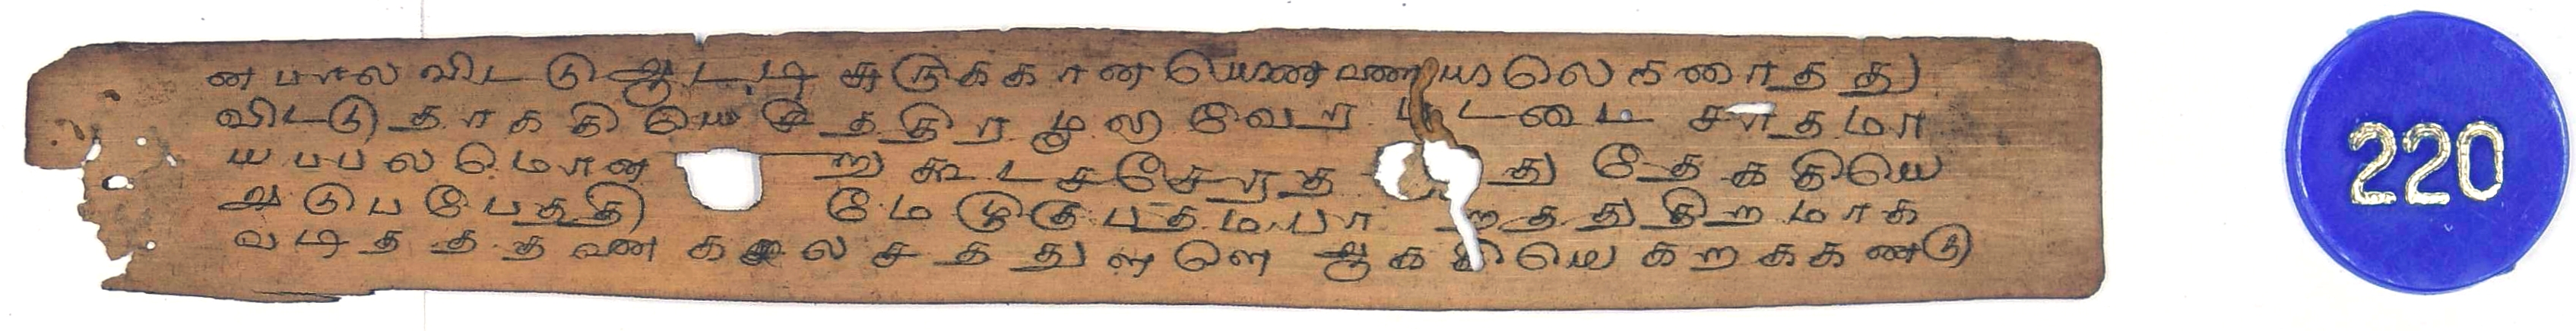 ன பால விட டு ஆட டி சுருக கான யெண ணையாலெ களைாத து
விட்டு தாககியெ சிததிர மூல வேர படடை சாதமா
ய பபல மொன று கூடசசேரத து தேககியெ
அடுபபேததி மேழுகு பதமபா றதது திறமாக
வடிதததண கலசததுளளெ ஆககியெ கறககணடு
220